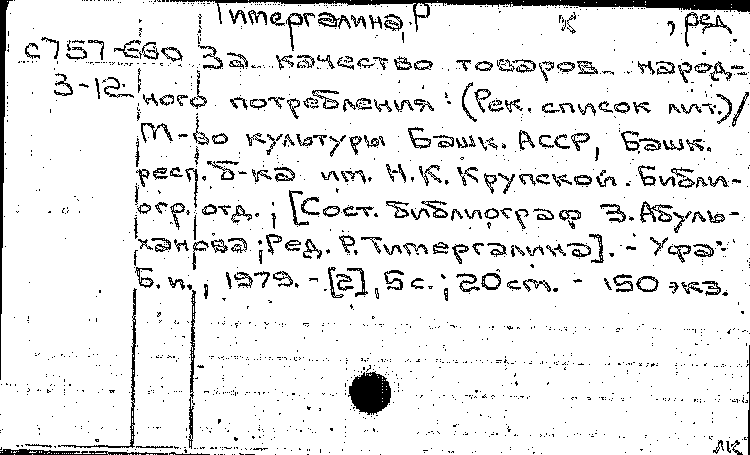 Тимергалина, Р , ред
С757-660 За качество товаров народ=
3-12 ного потребления: (Рек. список лит.)/
М-во культуры Башк. АССР, Башк.
респ. б-ка им. Н.К. Крупской. Библи-
огр. отд.; [Сост. библиограф З. Абуль-
ханова; Ред. Р. Тимергалина]. - Уфа:
Б.и., 1979. - [2], 5 с.; 20 см. - 150 экз.
лк